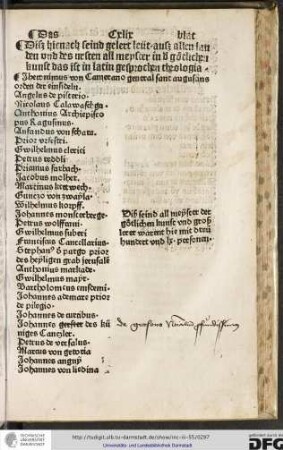 Das Cxlix blat
Diß hienach seind gelert leüt auß allen lan
den vnd des ersten all meyster in d götlichen
kunst das ist in latin gesprochen theologia.
Jheronimus von Camerano general sant augustins
orden der einsideln.
Angelus de pisterio.
Nicolaus Calowasch ga.
Anthonius Archiepisco
pus Ragusinus.
Ansandus von scham.
Prior
Gwilhelmus clerici
Petrus weldli
Priamus farbach.
Jacobus molhet.
Martinus kettwech.
Guncio von zwayla
Wilhelmus korpff.
Johannes monsterberge.
Petrus wolffram.
Gwilhelmus suberi
Francisus Camellarius.
Stephan9 õ purgo prior
des heyligen grab jerusalē
Anthonius markade.
Gwilhelmus mayr.
Bartholomeus emsdemi.
Johannes ademarc prior
de pilegio.
Johannes de curibus.
Johannes gerster des kü
niges Cantzler.
Petrus de versalus.
Marcus von genoua
Johannes anguy
Johannes von liedina
Diß seind all meyster der
götlichen kunst vnd groß
lerer warent hie mit drew
hundert vnd lx. personen.
de gersono
http://tudigit.ulb.tu-darmstadt.de/show/inc-iii-55/0297
Universitäts- und Landesbibliothek Darmstadt
TECHNISCHE
UNIVERSITÄT
DARMSTADT
gefördert durch die
DFG